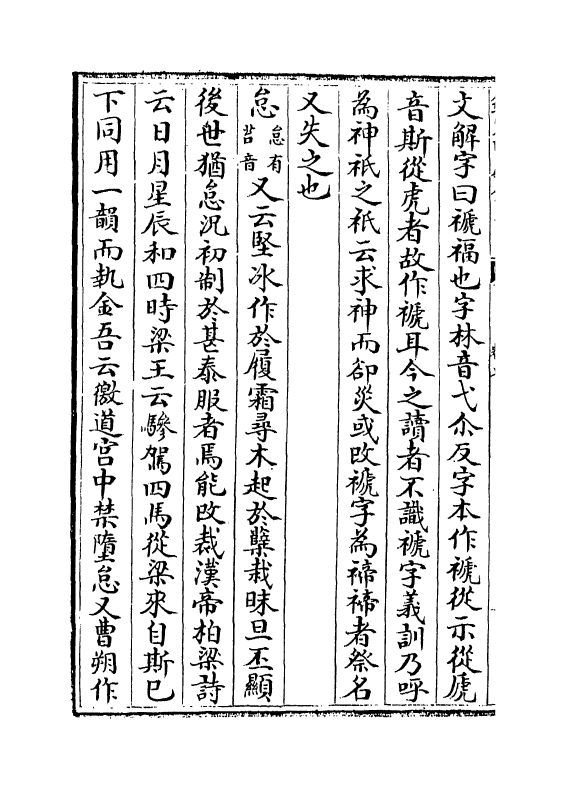 文解字曰禠福也字林音弋尒反字本作禠從示從虒
音斯從虎者故作禠耳今之讀者不識禠字義訓乃呼
為神祇之祇云求神而卻災或改禠字為禘禘者祭名
又失之也
怠怠有苔音又云堅冰作於履霜尋木起於櫱栽昧旦丕顯
後世猶怠況初制於甚泰服者焉能改裁漢帝柏梁詩
云日月星辰和四時梁王云驂駕四馬從梁來自斯已
下同用一韻而執金吾云徼道宮中禁墮怠又曹朔作